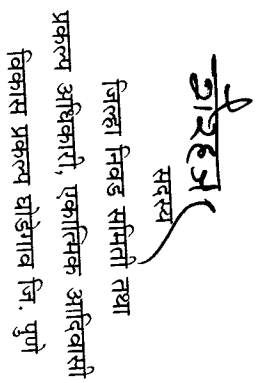 सदस्य
जिल्हा निवड समिती तथा
प्रकल्प अधिकारी, एकात्मिक आदिवासी
विकास प्रकल्प घोडेगाव जि. पुणे